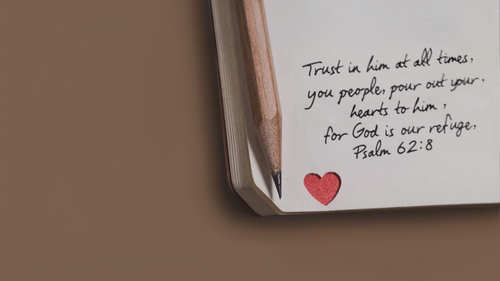 Trust in him at all times,
you people, pour out your
hearts to him,
for God is our refuge,
Psalm 62:8